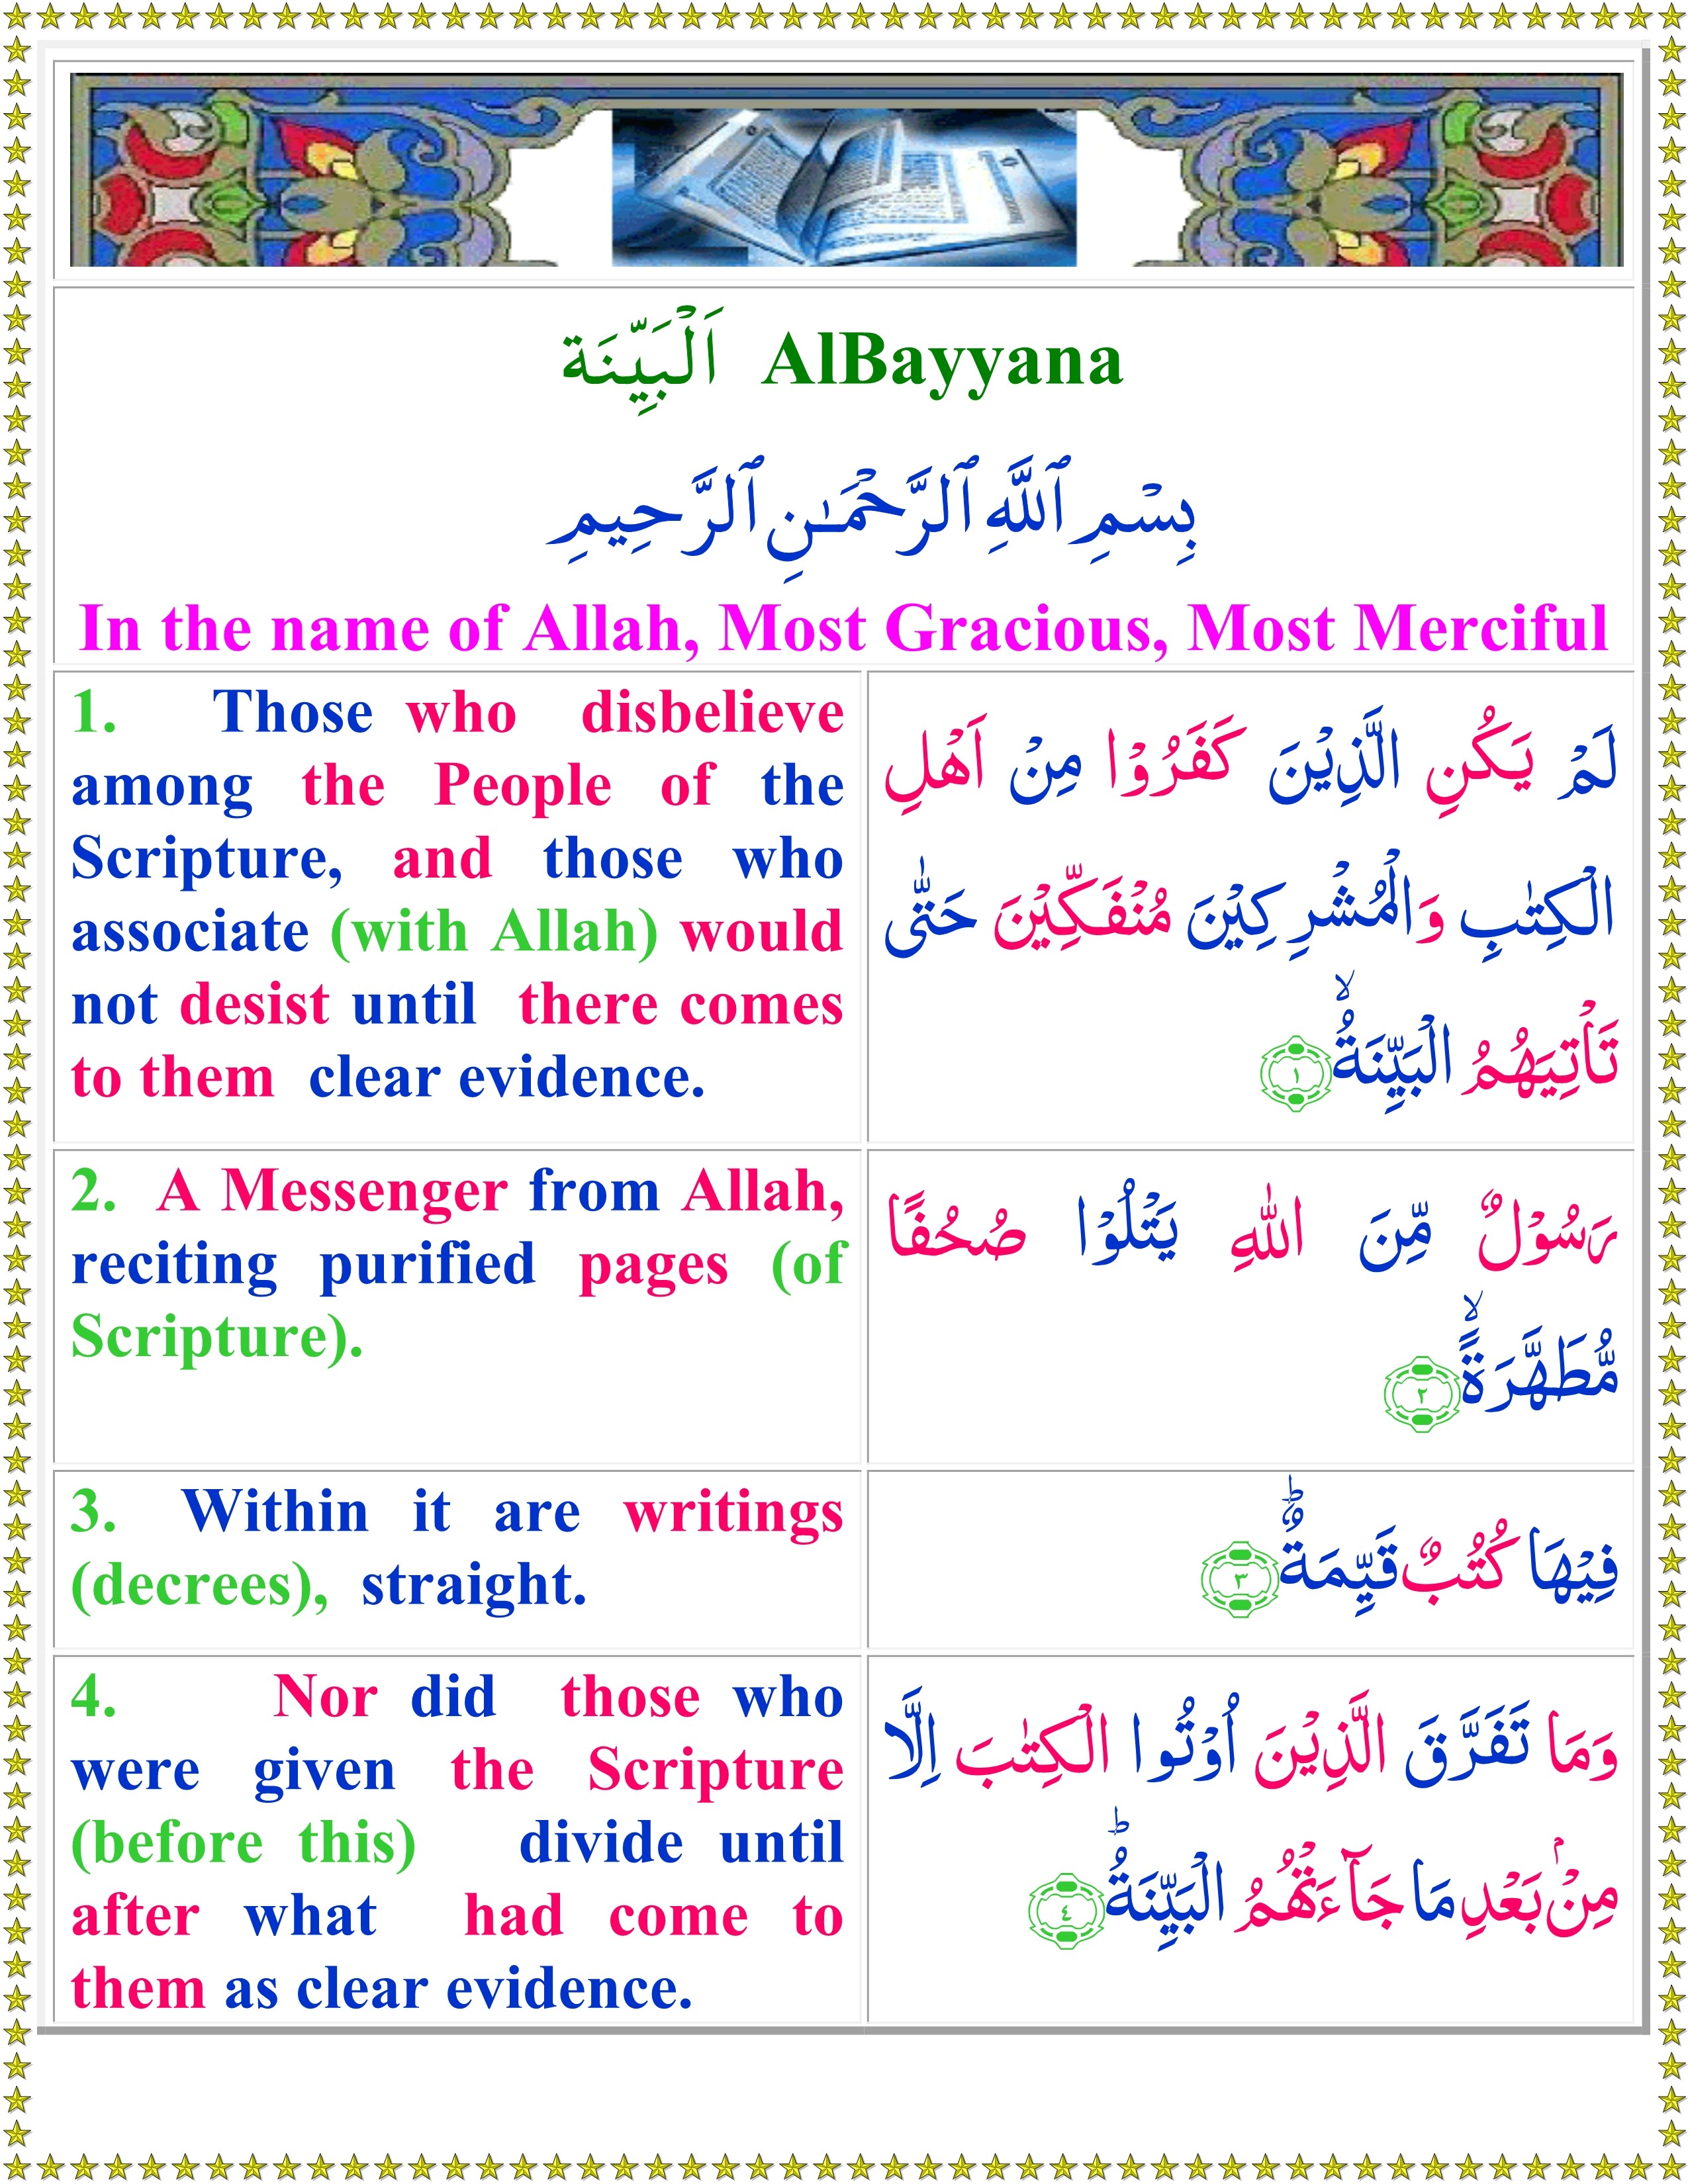 اَلْبَيِّنَة AlBayyana
بِسْمِ ٱللَّهِ ٱلرَّحْمَـٰنِ ٱلرَّحِيمِ
In the name of Allah, Most Gracious, Most Merciful
1. Those who disbelieve
among the People of the
Scripture, and those who
associate (with Allah) would
not desist until there comes
to them clear evidence.
لَمْ يَكُنِ الَّذِيْنَ كَفَرُوْا مِنْ اَهْلِ
الْكِتٰبِ وَالْمُشْرِكِيْنَ مُنْفَكِّيْنَ حَتّٰى
تَاْتِيَهُمُ الْبَيِّنَةُۙ‏ ﴿۱﴾
2. A Messenger from Allah,
reciting purified pages (of
Scripture).
رَسُوْلٌ مِّنَ اللّٰهِ يَتْلُوْا صُحُفًا
مُّطَهَّرَةًۙ‏ ﴿۲﴾
3. Within it are writings
(decrees), straight.
فِيْهَا كُتُبٌ قَيِّمَةٌؕ‏ ﴿۳﴾
4. Nor did those who
were given the Scripture
(before this) divide until
after what had come to
them as clear evidence.
وَمَا تَفَرَّقَ الَّذِيْنَ اُوْتُوا الْكِتٰبَ اِلَّا
مِنْۢ بَعْدِ مَا جَآءَتْهُمُ الْبَيِّنَةُؕ‏ ﴿٤﴾